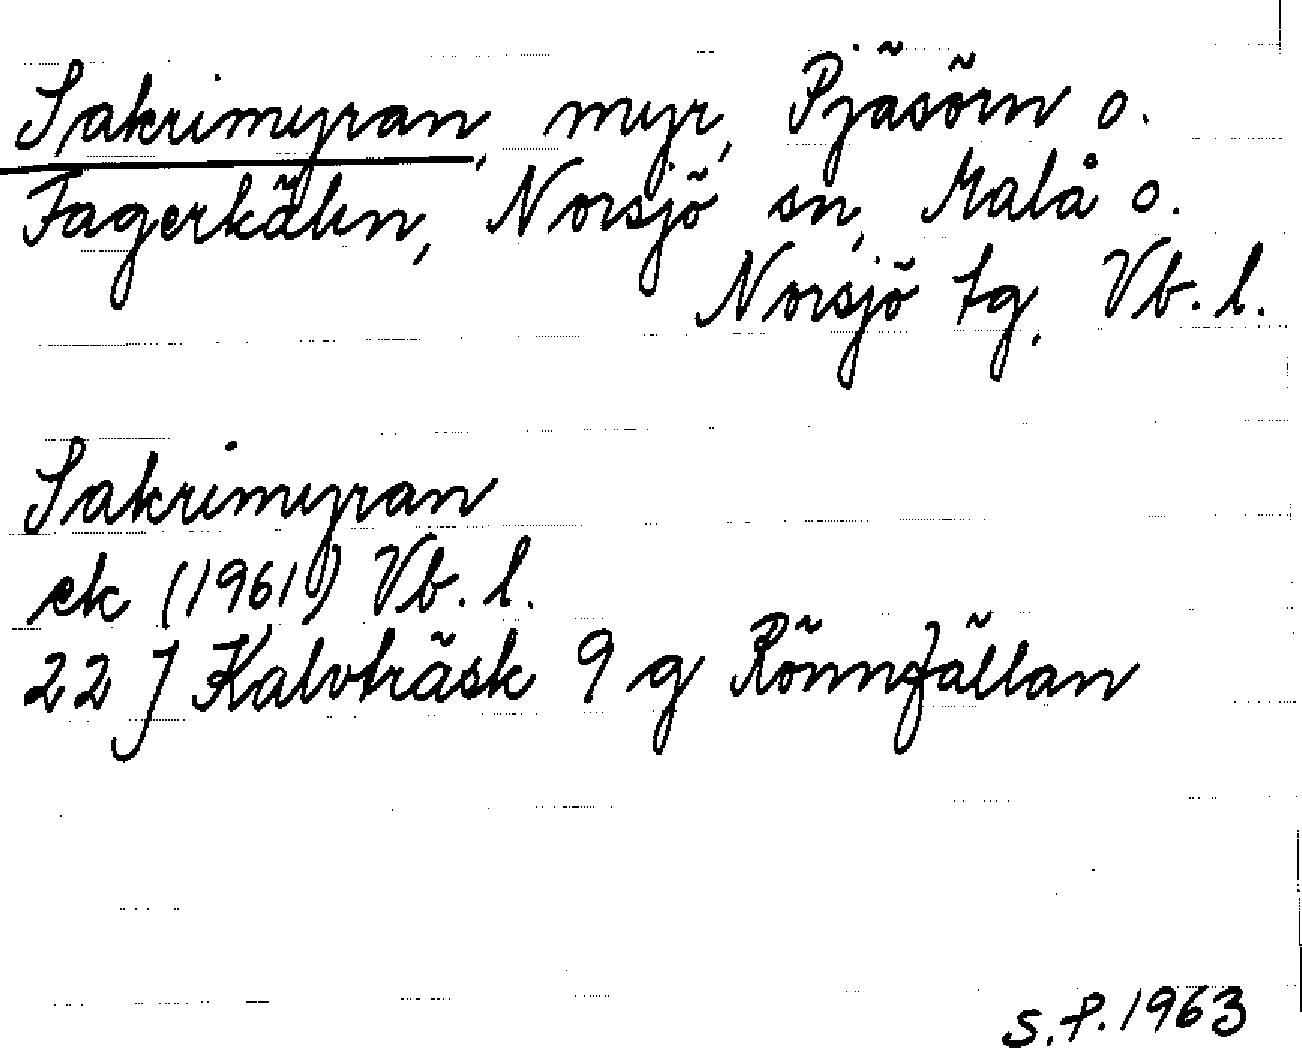 Sakrimyran, myr, Pjäsörn o.
Fagerkäln, Norsjö sn, Malå o.
Norsjö tg. Vb. l.
Sakrimyran
ek (1961) Vb. l.
22 J Kalvträsk 9 g Rönnfällan
S.P. 1963